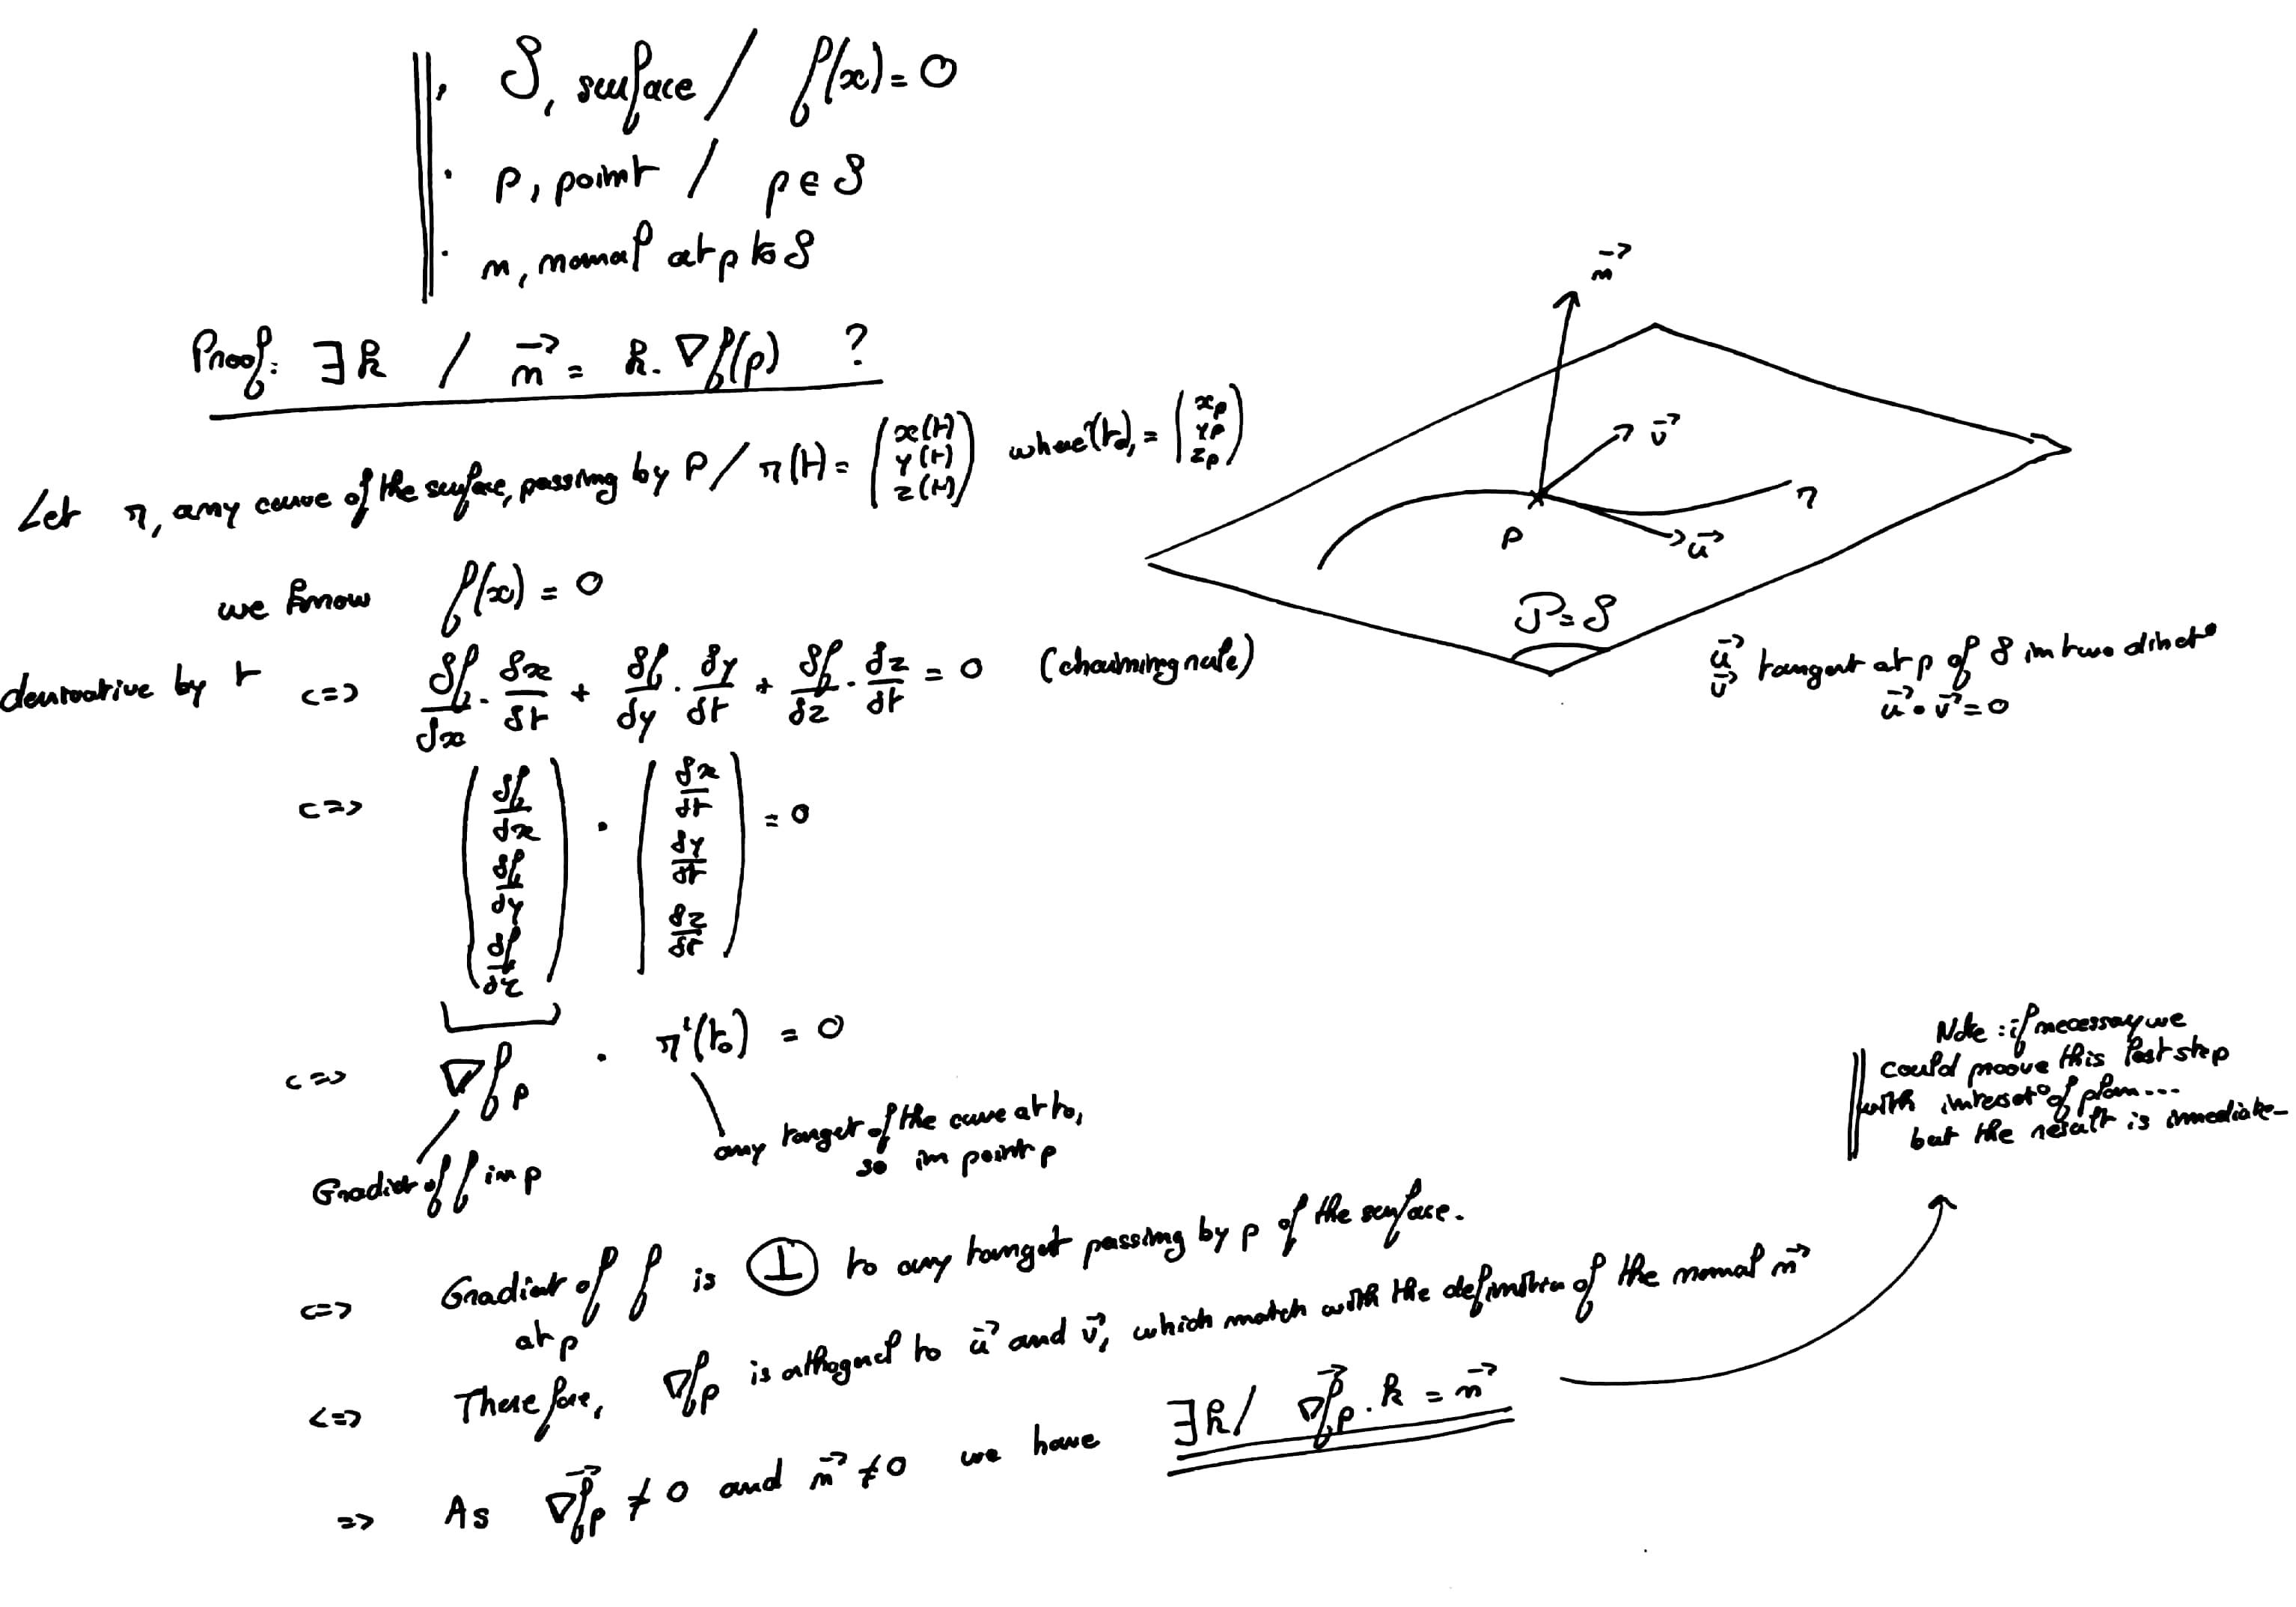 · S, surface / f(x) = 0
· p, point / p ∈ S
· n, normal at p to S
Proof: ∃ k / n⃗ = k. ∇f(p) ?
Let r, any curve of the surface, passing by P / r(t) = (x(t) y(t) z(t)) where r(t₀) = (xp yp zp)
we know f(x) = 0
derivative by t <=> δf/δx . δx/δt + δf/δy . δy/δt + δf/δz . δz/δt = 0 (chaining rule)
<=> (δf/δx δf/δy δf/δz) · (δx/δt δy/δt δz/δt) = 0
<=> ∇fp · r'(t₀) = 0
Gradient of f in p
any tangent of the curve at t₀,
so in point p
<=> Gradient of f is ⊥ to any tangent passing by p of the surface.
at p
<=> Therefore, ∇fp is orthogonal to u⃗ and v⃗, which match with the definition of the normal n⃗
=> As ∇⃗fp ≠ 0 and n⃗ ≠ 0 we have ∃ k / ∇⃗fp . k = n⃗
n⃗
v⃗
r
P
u⃗
P = S
u⃗ v⃗ tangent at p of S in two direct°
u⃗ · v⃗ = 0
Note : if necessary we
could proove this last step
with interset° of plan...
but the result is immediate_